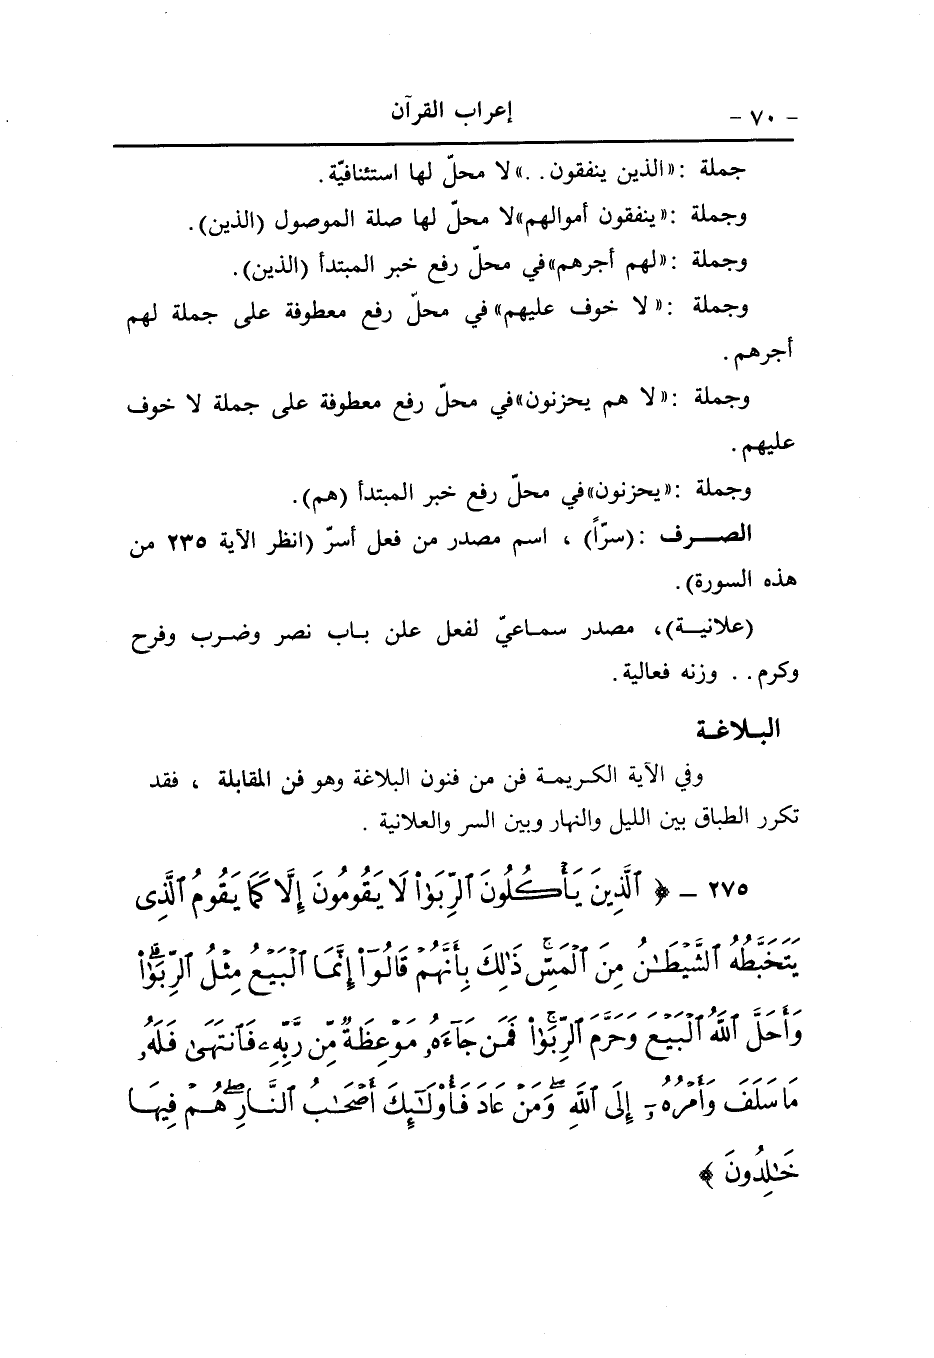 - ٧٠ - إعراب القرآن
جملة :«الذين ينفقون . .» لا محلّ لها استئنافيّة .
وجملة :«ينفقون أموالهم»لا محلّ لها صلة الموصول (الذين).
وجملة :«لهم أجرهم»في محلّ رفع خبر المبتدأ (الذين).
وجملة :« لا خوف عليهم» في محلّ رفع معطوفة على جملة لهم
أجرهم .
وجملة :« لا هم يحزنون»في محلّ رفع معطوفة على جملة لا خوف
عليهم .
وجملة :«يحزنون»في محلّ رفع خبر المبتدأ (هم).
الصـــرف :(سرّاً) ، اسم مصدر من فعل أسرّ (انظر الآية ٢٣٥ من
هذه السورة).
(علانيــة)، مصدر سمـاعيّ لفعل علن بـاب نصر وضـرب وفرح
وكرم . . وزنه فعالية .
البـلاغـة
وفي الآية الكـريمـة فن من فنون البلاغة وهو فن المقابلة ، فقد
تكرر الطباق بين الليل والنهار وبين السر والعلانية .
٢٧٥ - ﴿ ٱلَّذِينَ يَأْكُلُونَ ٱلرِّبَوٰا۟ لَا يَقُومُونَ إِلَّا كَمَا يَقُومُ ٱلَّذِى
يَتَخَبَّطُهُ ٱلشَّيْطَـٰنُ مِنَ ٱلْمَسِّ ۚ ذَٰلِكَ بِأَنَّهُمْ قَالُوٓا۟ إِنَّمَا ٱلْبَيْعُ مِثْلُ ٱلرِّبَوٰا۟ ۗ
وَأَحَلَّ ٱللَّهُ ٱلْبَيْعَ وَحَرَّمَ ٱلرِّبَوٰا۟ ۚ فَمَن جَآءَهُۥ مَوْعِظَةٌ مِّن رَّبِّهِۦ فَٱنتَهَىٰ فَلَهُۥ
مَا سَلَفَ وَأَمْرُهُۥٓ إِلَى ٱللَّهِ ۖ وَمَنْ عَادَ فَأُو۟لَـٰٓئِكَ أَصْحَـٰبُ ٱلنَّارِ ۖ هُمْ فِيهَا
خَـٰلِدُونَ ﴾